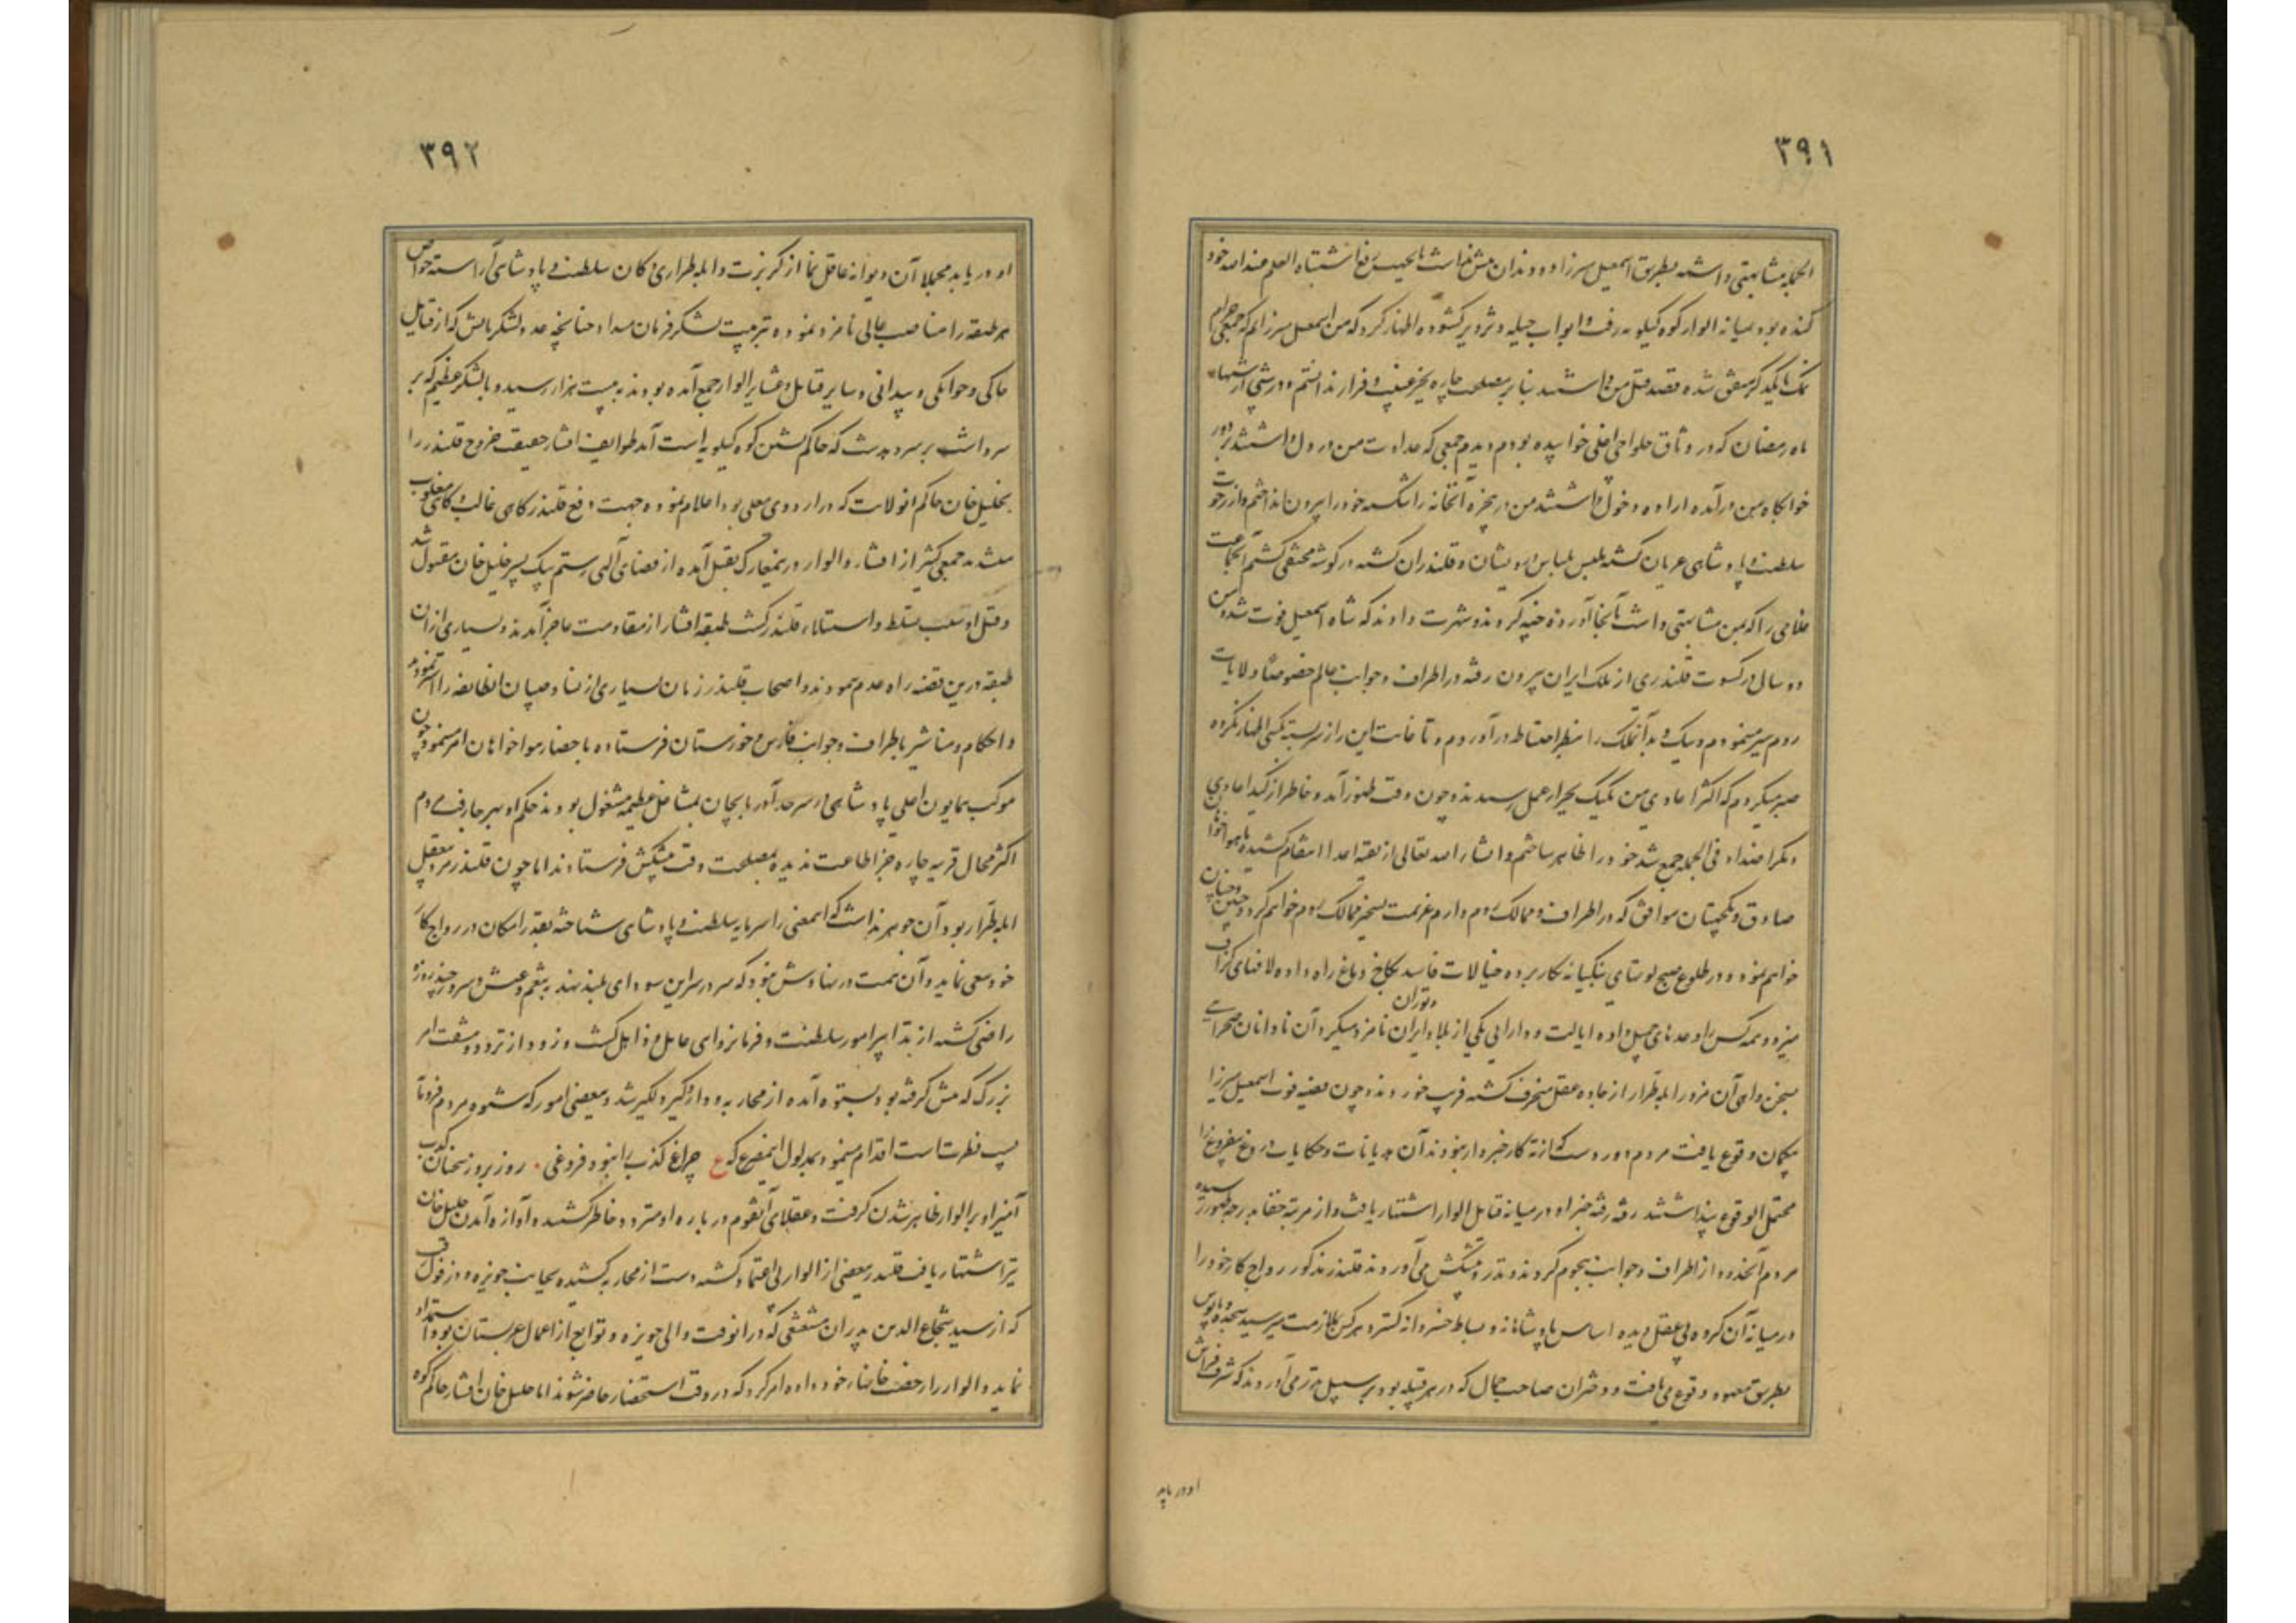 ۳۹۱
الجمله مشابهتی داشته بطریق اسمعیل میرزا دو دندان پیش نداشت بجهت رفع اشتباه العلم عند الله خود
کنده بود بمیانه الوار کوه کیلویه رفت و ابواب حیله و تزویر کشوده اظهار کرد که من اسمعیل میرزایم که جمعی حرام
نمک با یکدیگر متفق شده قصد قتل من داشتند بنابر مصلحت چاره بجز غیبت و فرار ندانستم و در شبی از شبهاء
ماه رمضان که در وثاق حلواجی اغلی خوابیده بودم دیدم جمعی که عداوت من در دل داشتند بر دور
خوابگاه من درآمده اراده دخول داشتند من در پنجره آنخانه را شکسته خود را بیرون انداختم و از رخوت
سلطنت و پادشاهی عریان کشته بلبس لباس درویشان و قلندران کشته در کوشه مختفی کشتم آنجماعت
غلامی را که بمن مشابهتی داشت بآنجا آورده خپه کردند و شهرت دادند که شاه اسمعیل فوت شد و من
دو سال در کسوت قلندری از ملک ایران بیرون رفته در اطراف و جوانب عالم خصوصا ولایات
روم سیر مینمودم و نیک و بد آنملک را بنظر احتیاط درآوردم و تا غایت این راز سربسته بکسی اظهار نکرده
صبر میکردم که اکثر اعادی من یکیک بجزای عمل رسیدند و چون وقت ظهور آمد و خاطر از کید اعادی
و مکر اضداد فی الجمله جمع شد خود را ظاهر ساختم و انشاء الله تعالی از بقیه اعدا انتقام کشیده با هواخواهان
صادق و یکجهتان موافق که در اطراف و ممالک روم دارم عزیمت تسخیر ممالک روم خواهم کرد و چنین و چنان
خواهم نمود و در طلوع صبح بوستای بنکیانه بکار برده خیالات فاسد بکاخ دماغ راه داده لافهای کزاف
میزد و همه کس را وعدهای جمیل داده ایالت و دارایی یکی از بلاد ایران و توران نامزد میکرد آن نادانان صحرائی
بسخن واهی آن مزور ابله طرار از جاده عقل منحرف کشته فریب خوردند و چون قضیه فوت اسمعیل میرزا
بیکمان وقوع یافت مردم دوردست که از ته کار خبردار نبودند آن هذیانات و حکایات دروغ بیفروغ را
محتمل الوقوع پنداشتند رفته رفته خبر او در میانه قبایل الوار اشتهار یافت و از مرتبه خفا بدرجه ظهور رسیده
مردم آنحدود از اطراف و جوانب هجوم کردند و نذر و پیشکش می آوردند قلندر مذکور رواج کار خود را
در میانه آن کروه بی عقل دیده اساس پادشاهانه و بساط خسروانه کسترد هر کس بملازمت میرسید سجده و پابوس
بطریق معهود وقوع می یافت و دختران صاحب جمال که در هر قبیله بود بر سبیل نذر می آوردند که شرف فراش
او دریابد
۳۹۲
او دریابد مجملا آن دیوانه عاقل نما از کربزت و ابله طراری دکان سلطنت و پادشاهی آراسته خواص
هر طبقه را مناصب عالی نامزد نموده بتربیت لشکر فرمان میداد چنانچه عدد لشکریانش که از قبایل
جاکی و جوانکی و بندانی و سایر قبایل و عشایر الوار جمع آمده بودند به بیست هزار رسید و با لشکر عظیم که بر
سر داشت بر سر دهدشت که حاکم نشین کوه کیلویه است آمد طوایف افشار حقیقت خروج قلندر را
بخلیل خان حاکم انولایت که در اردوی معلی بود اعلام نموده جهت دفع قلندر کاهی غالب و کاهی مغلوب
میشدند جمعی کثیر از افشار و الوار در ینمعارک بقتل آمده از قضای آلهی رستم بیک پسر خلیل خان مقتول شد
و قتل او سبب تسلط و استیلاء قلندر کشت طبقه افشار از مقاومت عاجز آمدند و بسیاری از ان
طبقه درین قضیه راه عدم پیمودند و اصحاب قلندر زمان بسیاری از نسا و صبیان انطایفه را اسیر نمودند
و احکام و مناشیر باطراف و جوانب فارس و خوزستان فرستاده باحضار هواخواهان امر مینمود چون
موکب همایون اعلی پادشاهی در سرحد آذربایجان بمشاغل عظیمه مشغول بودند حکم او بهر جا رفت مردم
اکثر محال قریبه چاره جز اطاعت ندیده بمصلحت وقت پیشکش فرستادند اما چون قلندر مرد بیعقل
ابله طرار بود آن جوهر نداشت که اینمعنی را سرمایه سلطنت و پادشاهی شناخته بقدر امکان در رواج کار
خود سعی نماید و آن همت در نهادش نبود که سر در سر این سودای بلند نهند به تنعم و عیش و سرور چند روزه
راضی کشته از تدابیر امور سلطنت و فرمانروائی غافل و ذاهل کشت و زود از تردد و مشقت امر
بزرک که پیش کرفته بود بستوه آمده از محاربه و دار و کیر دلکیر شد و ببعضی امور که شیوه مردم فرومایه
پست فطرتست اقدام مینمود بمدلول اینمصرع که ع چراغ کذب را نبود فروغی . روز بروز سخنان کذب
آمیز او بر الوار ظاهر شدن کرفت و عقلای آنقوم در باره او متردد خاطر کشتند و آوازه آمدن خلیل خان
نیز اشتهار یافت قلندر ببعضی از الوار بی اعتماد کشته دست از محاربه کشیده بجانب حویزه و دزفول رفت
که از سید شجاع الدین بدران مشعشعی که در انوقت والی حویزه و توابع از اعمال عربستان بود استمداد
نماید و الوار را رخصت خانهای خود داده امر کرد که در وقت استحضار حاضر شوند اما خلیل خان افشار حاکم کوه